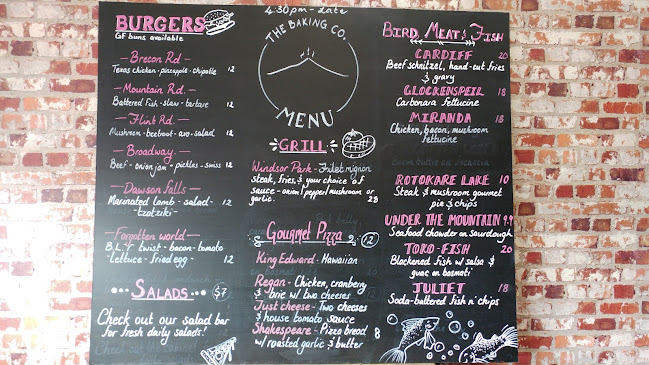 BURGERS
GF buns available
Brecon Rd
Texas chicken - pineapple - chipotle 12
Mountain Rd.
Battered fish - slaw - tartare 12
Flint Rd.
Mushroom - beetroot - avo - salad 12
Broadway
Beef - onion jam - pickles - swiss 12
Dawson falls
Marinated lamb - salad - 12
tzatziki
Forgotten world
B.L.F twist - bacon - tomato
lettuce - fried egg - 12
SALADS $7
Check out our salad bar
for fresh daily salads!
4:30pm - late
THE BAKING CO.
MENU
GRILL
Windsor Park - Filet mignon
steak, fries & your choice of
sauce - onion | pepper | mushroom or
garlic. 28
Gourmet Pizza 12
King Edward - Hawaiian
Regan - Chicken, cranberry
& brie w/ two cheeses
Just cheese - Two cheeses
& house tomato sauce
Shakespeare - Pizza bread 8
w/ roasted garlic & butter
Bird, Meat & Fish
CARDIFF 20
Beef schnitzel, hand-cut fries
& gravy
GLOCKENSPEIL 18
Carbonara fettucine
MIRANDA 18
Chicken, bacon, mushroom
fettucine
ROTOKARE LAKE 10
Steak & mushroom gourmet
pie & chips
UNDER THE MOUNTAIN 9.9
Seafood chowder on sourdough
TORO-FISH 20
Blackened fish w/ salsa &
guac on basmati
JULIET 18
Soda-battered fish n' chips